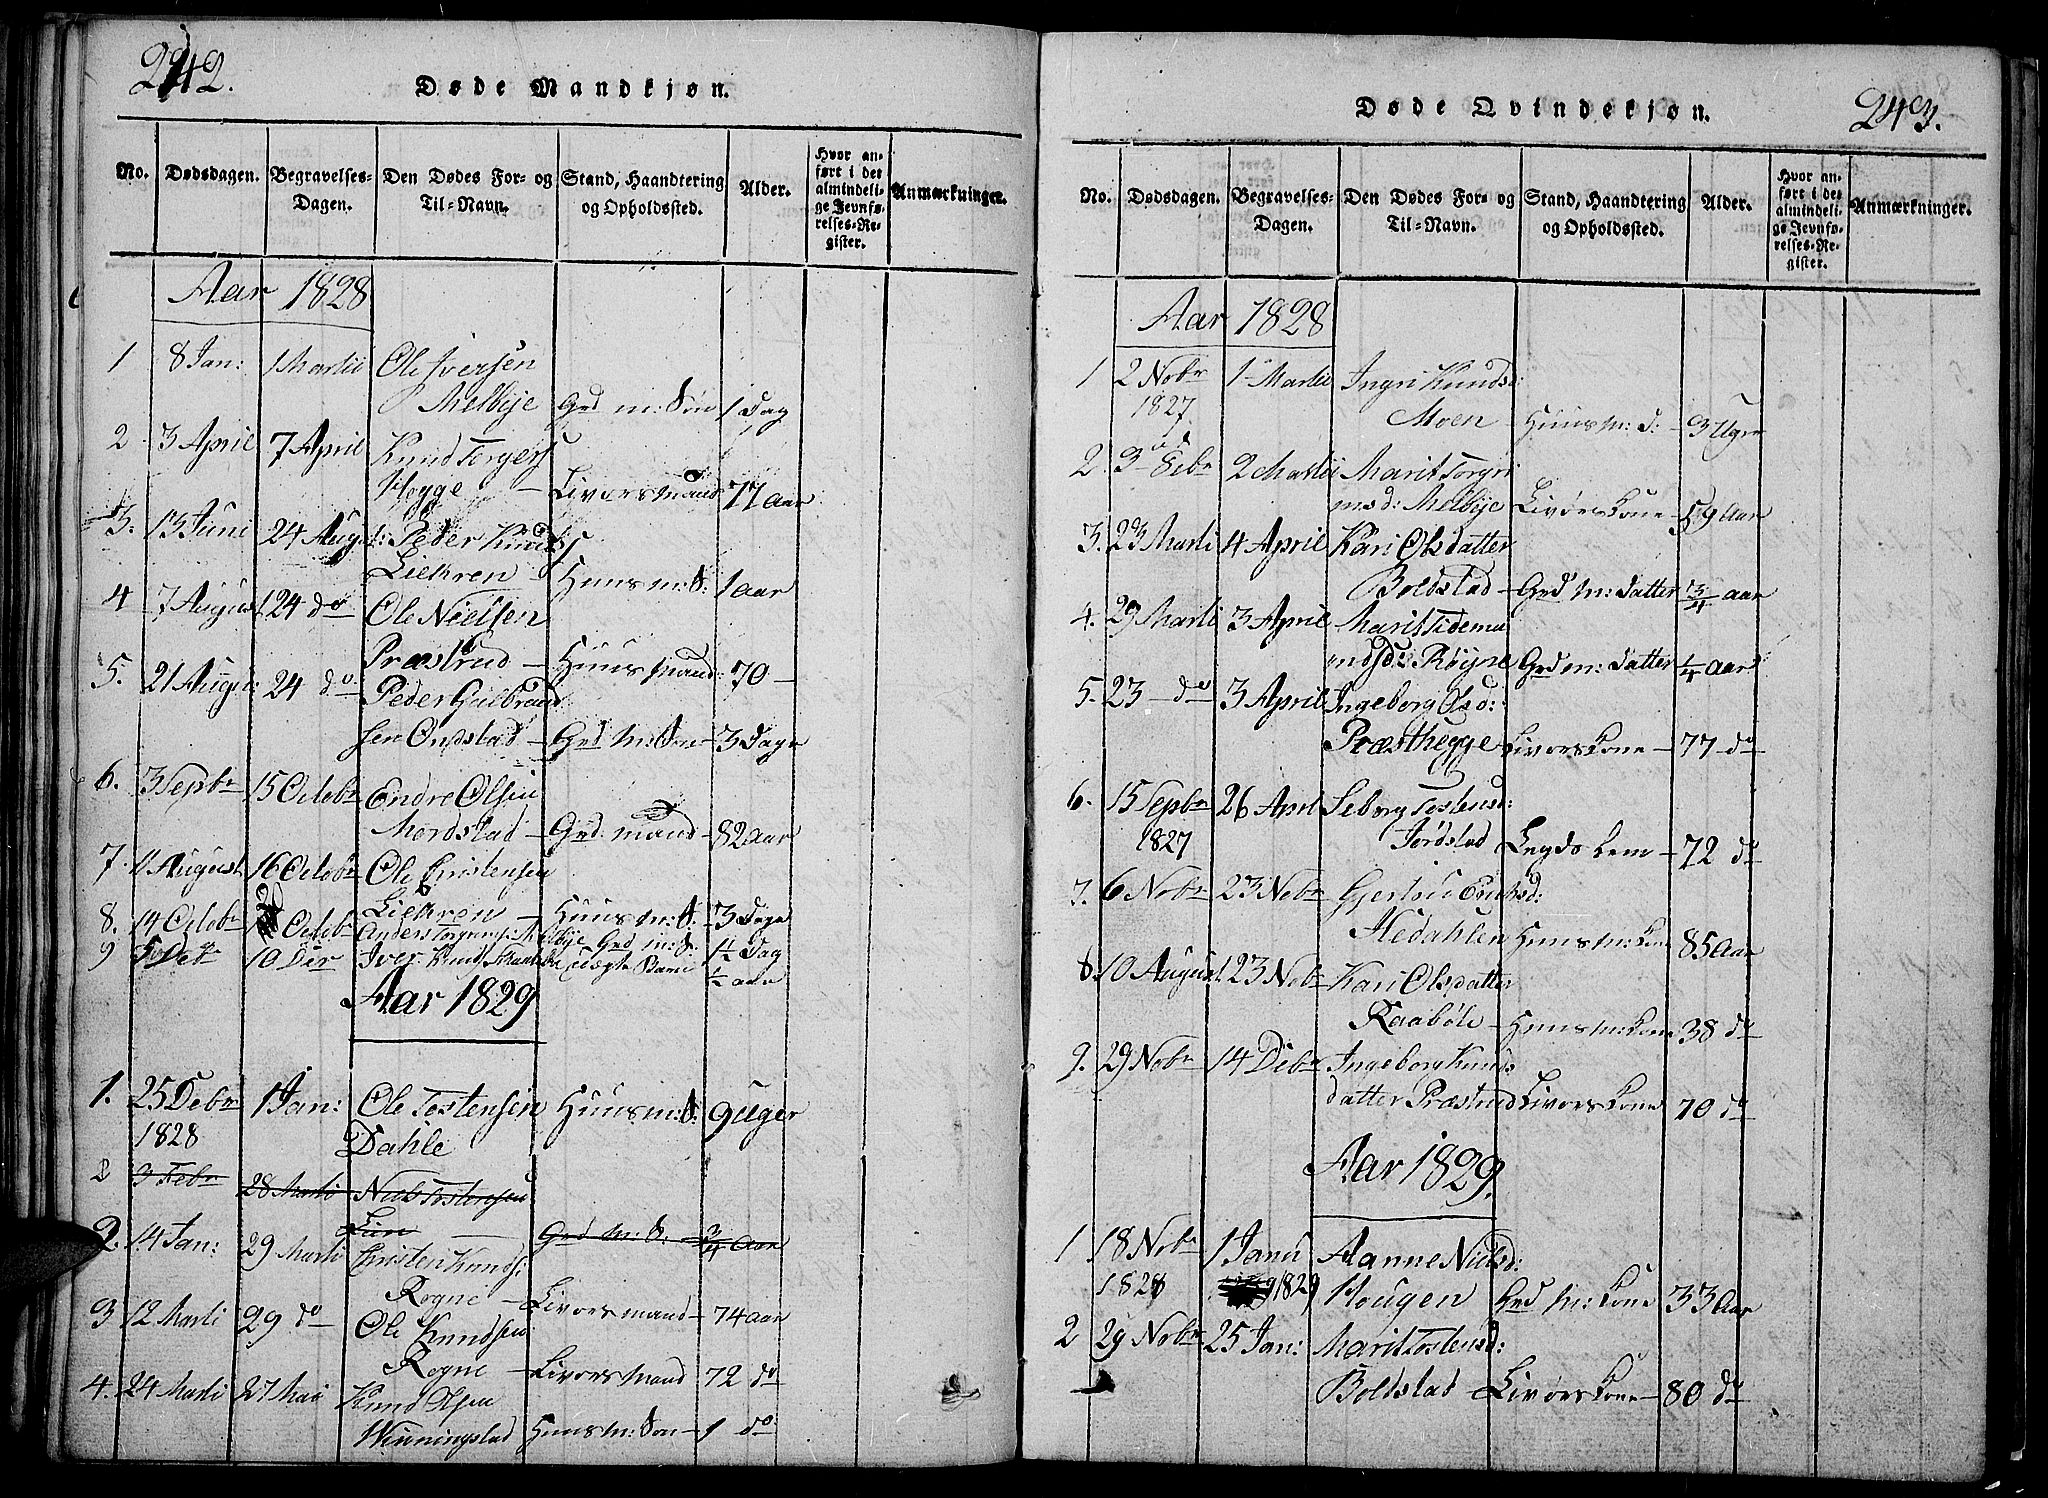 242.
Døde Mandkjøn.
No. Dødsdagen. Begravelses-Dagen. Den Dødes For- og Til-Navn. Stand, Haandtering og Opholdssted. Alder. Hvor anført i det almindelige Jevnførelses-Register. Anmærkninger.
Aar 1828
1 8 Jan: 1 Martii Ole Iversen
Melbye Grd m: Søn 1 Dag
2 3 April 7 April Knud Torgers
Hegge - Livørsmand 77 Aar
3. 13 Juni 24 August: Peder Knuds
Liekren - Huusm: S: 1 aar
4 7 August 24 do Ole Nielsen
Præstrud - Huusmand: 70 -
5. 21 Augu: 24 do Peder Gulbrand
sen Ondstad - Grd m: Søn - 3 Dage
6. 3 Sepbr 15 Octobr Endre Olsen
Mordstad - Grd: mand - 82 aar
7. 11 August 16 Octobr Ole Cristensen
Liekren - Huusm: S: 3 Dage
8. 14 Octobr Octobr Anders Torgers: Melbye Grd m: S: 1½ Dag
9 5 Dec 10 Der Iver Knuds uægte Barn ½ aar
Aar 1829
1. 25 Debr 1 Jan: Ole Tostensen Huusm: S: 9 Uger
1828 Dahle
2 3 Febr 28 Marti Niels Tostensen
Lien Grd m: S: ¾ aar
2. 14 Jan: 29 Marti Cristen Knuds:
Rogne - Livørsmand - 74 aar
3 12 Marti 29 do Ole Knudsen
Rogne - Livørsmand 72 do
4. 24 Marti 27 Mai Knud Olsen
Winningstad Huusm: Søn - 1 do
243.
Døde Qvindekjøn.
No. Dødsdagen. Begravelses-Dagen. Den Dødes For- og Til-Navn. Stand, Haandtering og Opholdssted. Alder. Hvor anført i det almindelige Jevnførelses-Register. Anmærkninger.
Aar 1828
1 2 Nobr 1 Martii Ingri Knudsd:
1827 Moen - Huusm: D: - 3 Uger
2. 3 Febr 2 Martii Marit Torgri
msd: Melbye Livørs Kone - 59 Aar
3. 23 Marti 4 April Kari Olsdatter
Boldstad - Grd m: Datter ¾ aar
4. 29 Marti 3 April Marit Tidema
ndsd: Røyne Grd m: Datter ¼ aar
5. 23 - do 3 April Ingeborg Olsd:
Præsthegge Livørs Kone - 77 do
6. 15 Sepbr 26 April Seborg Tostensd:
1827 Jørdstad Legds Lem - 72 do
7. 6 Nobr 23 Nobr Gjertru Eriksd:
Hedahlen Huusm: Kone 85 Aar
8. 10 August 23 Nobr Kari Olsdatter
Raabøle - Huusm: Kone 38 do
9. 29 Nobr 14 Debr Ingeborg Knuds
datter Præstrud Livørs Kone 70 do
Aar 1829.
1 18 Nobr 1 Janu Aanne Nielsd:
1828 1829 Hougen Grd m: Kone 33 Aar
2 29 Nobr 25 Jan: Marit Tostensd:
Boldstad Livørs Kone - 80 do